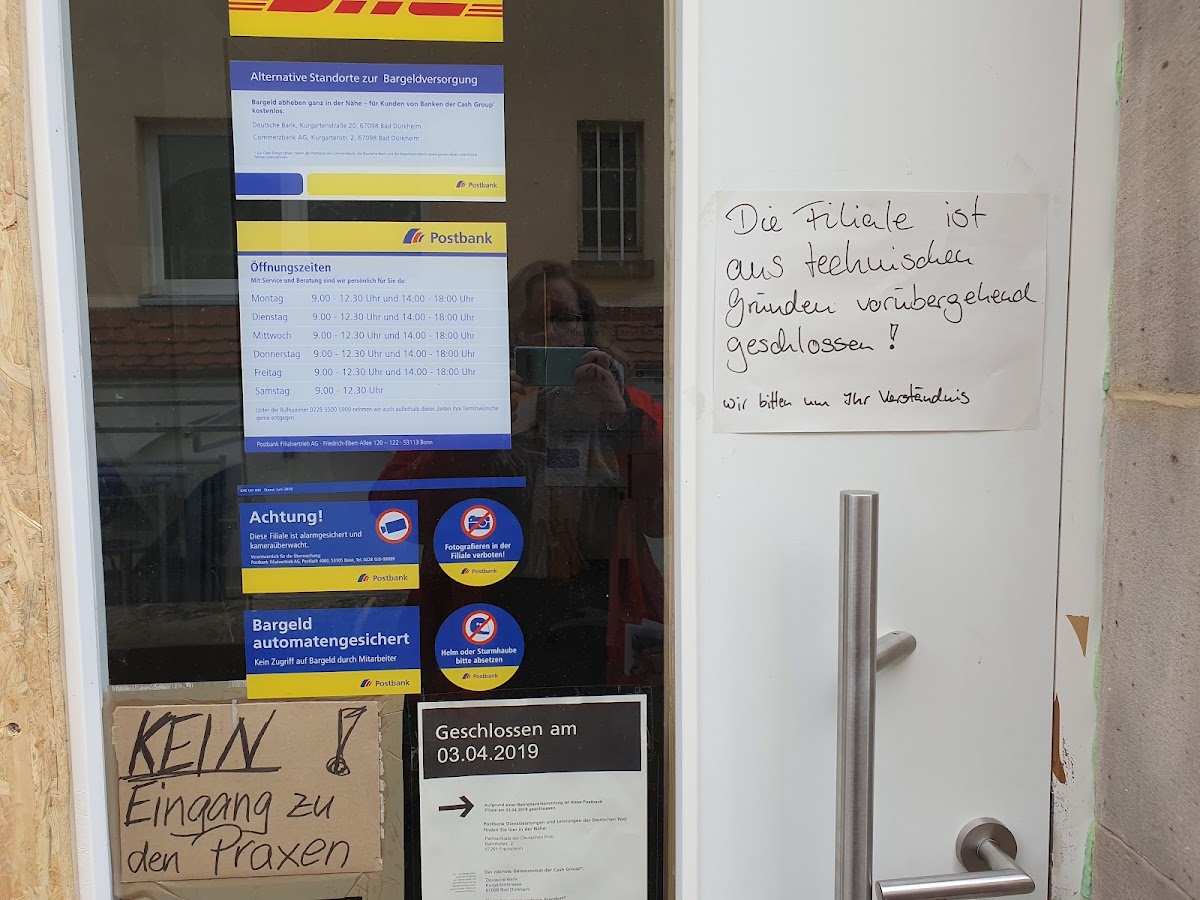 DHL
Alternative Standorte zur Bargeldversorgung
Bargeld abheben ganz in der Nähe – für Kunden von Banken der Cash Group*
kostenlos.
Deutsche Bank, Kurgartenstraße 20, 67098 Bad Dürkheim
Commerzbank AG, Kurgartenstr. 2, 67098 Bad Dürkheim
Postbank
Postbank
Öffnungszeiten
Mit Service und Beratung sind wir persönlich für Sie da:
Montag 9.00 - 12.30 Uhr und 14.00 - 18:00 Uhr
Dienstag 9.00 - 12.30 Uhr und 14.00 - 18:00 Uhr
Mittwoch 9.00 - 12.30 Uhr und 14.00 - 18:00 Uhr
Donnerstag 9.00 - 12.30 Uhr und 14.00 - 18:00 Uhr
Freitag 9.00 - 12.30 Uhr und 14.00 - 18:00 Uhr
Samstag 9.00 - 12.30 Uhr
Unter der Rufnummer 0228 5500 5900 nehmen wir auch außerhalb dieser Zeiten Ihre Terminwünsche
gerne entgegen.
Postbank Filialvertrieb AG · Friedrich-Ebert-Allee 120 – 122 · 53113 Bonn
Achtung!
Diese Filiale ist alarmgesichert und
kameraüberwacht.
Verantwortlich für die Überwachung:
Postbank Filialvertrieb AG, Postfach 4000, 53105 Bonn, Tel.
Postbank
Fotografieren in der
Filiale verboten!
Postbank
Bargeld
automatengesichert
Kein Zugriff auf Bargeld durch Mitarbeiter
Postbank
Helm oder Sturmhaube
bitte absetzen
Postbank
KEIN !
Eingang zu
den Praxen
Geschlossen am
03.04.2019
Aufgrund einer Betriebsversammlung ist diese Postbank
Filiale am 03.04.2019 geschlossen.
Postbank Dienstleistungen und Leistungen der Deutschen Post
finden Sie hier in der Nähe:
Partnerfiliale der Deutschen Post
Bahnhofstr. 2
67251 Freinsheim
Der nächste Geldautomat der Cash Group*
Deutsche Bank
Kurgartenstrasse
67098 Bad Dürkheim
Die Filiale ist
aus technischen
Gründen vorübergehend
geschlossen !
Wir bitten um Ihr Verständnis